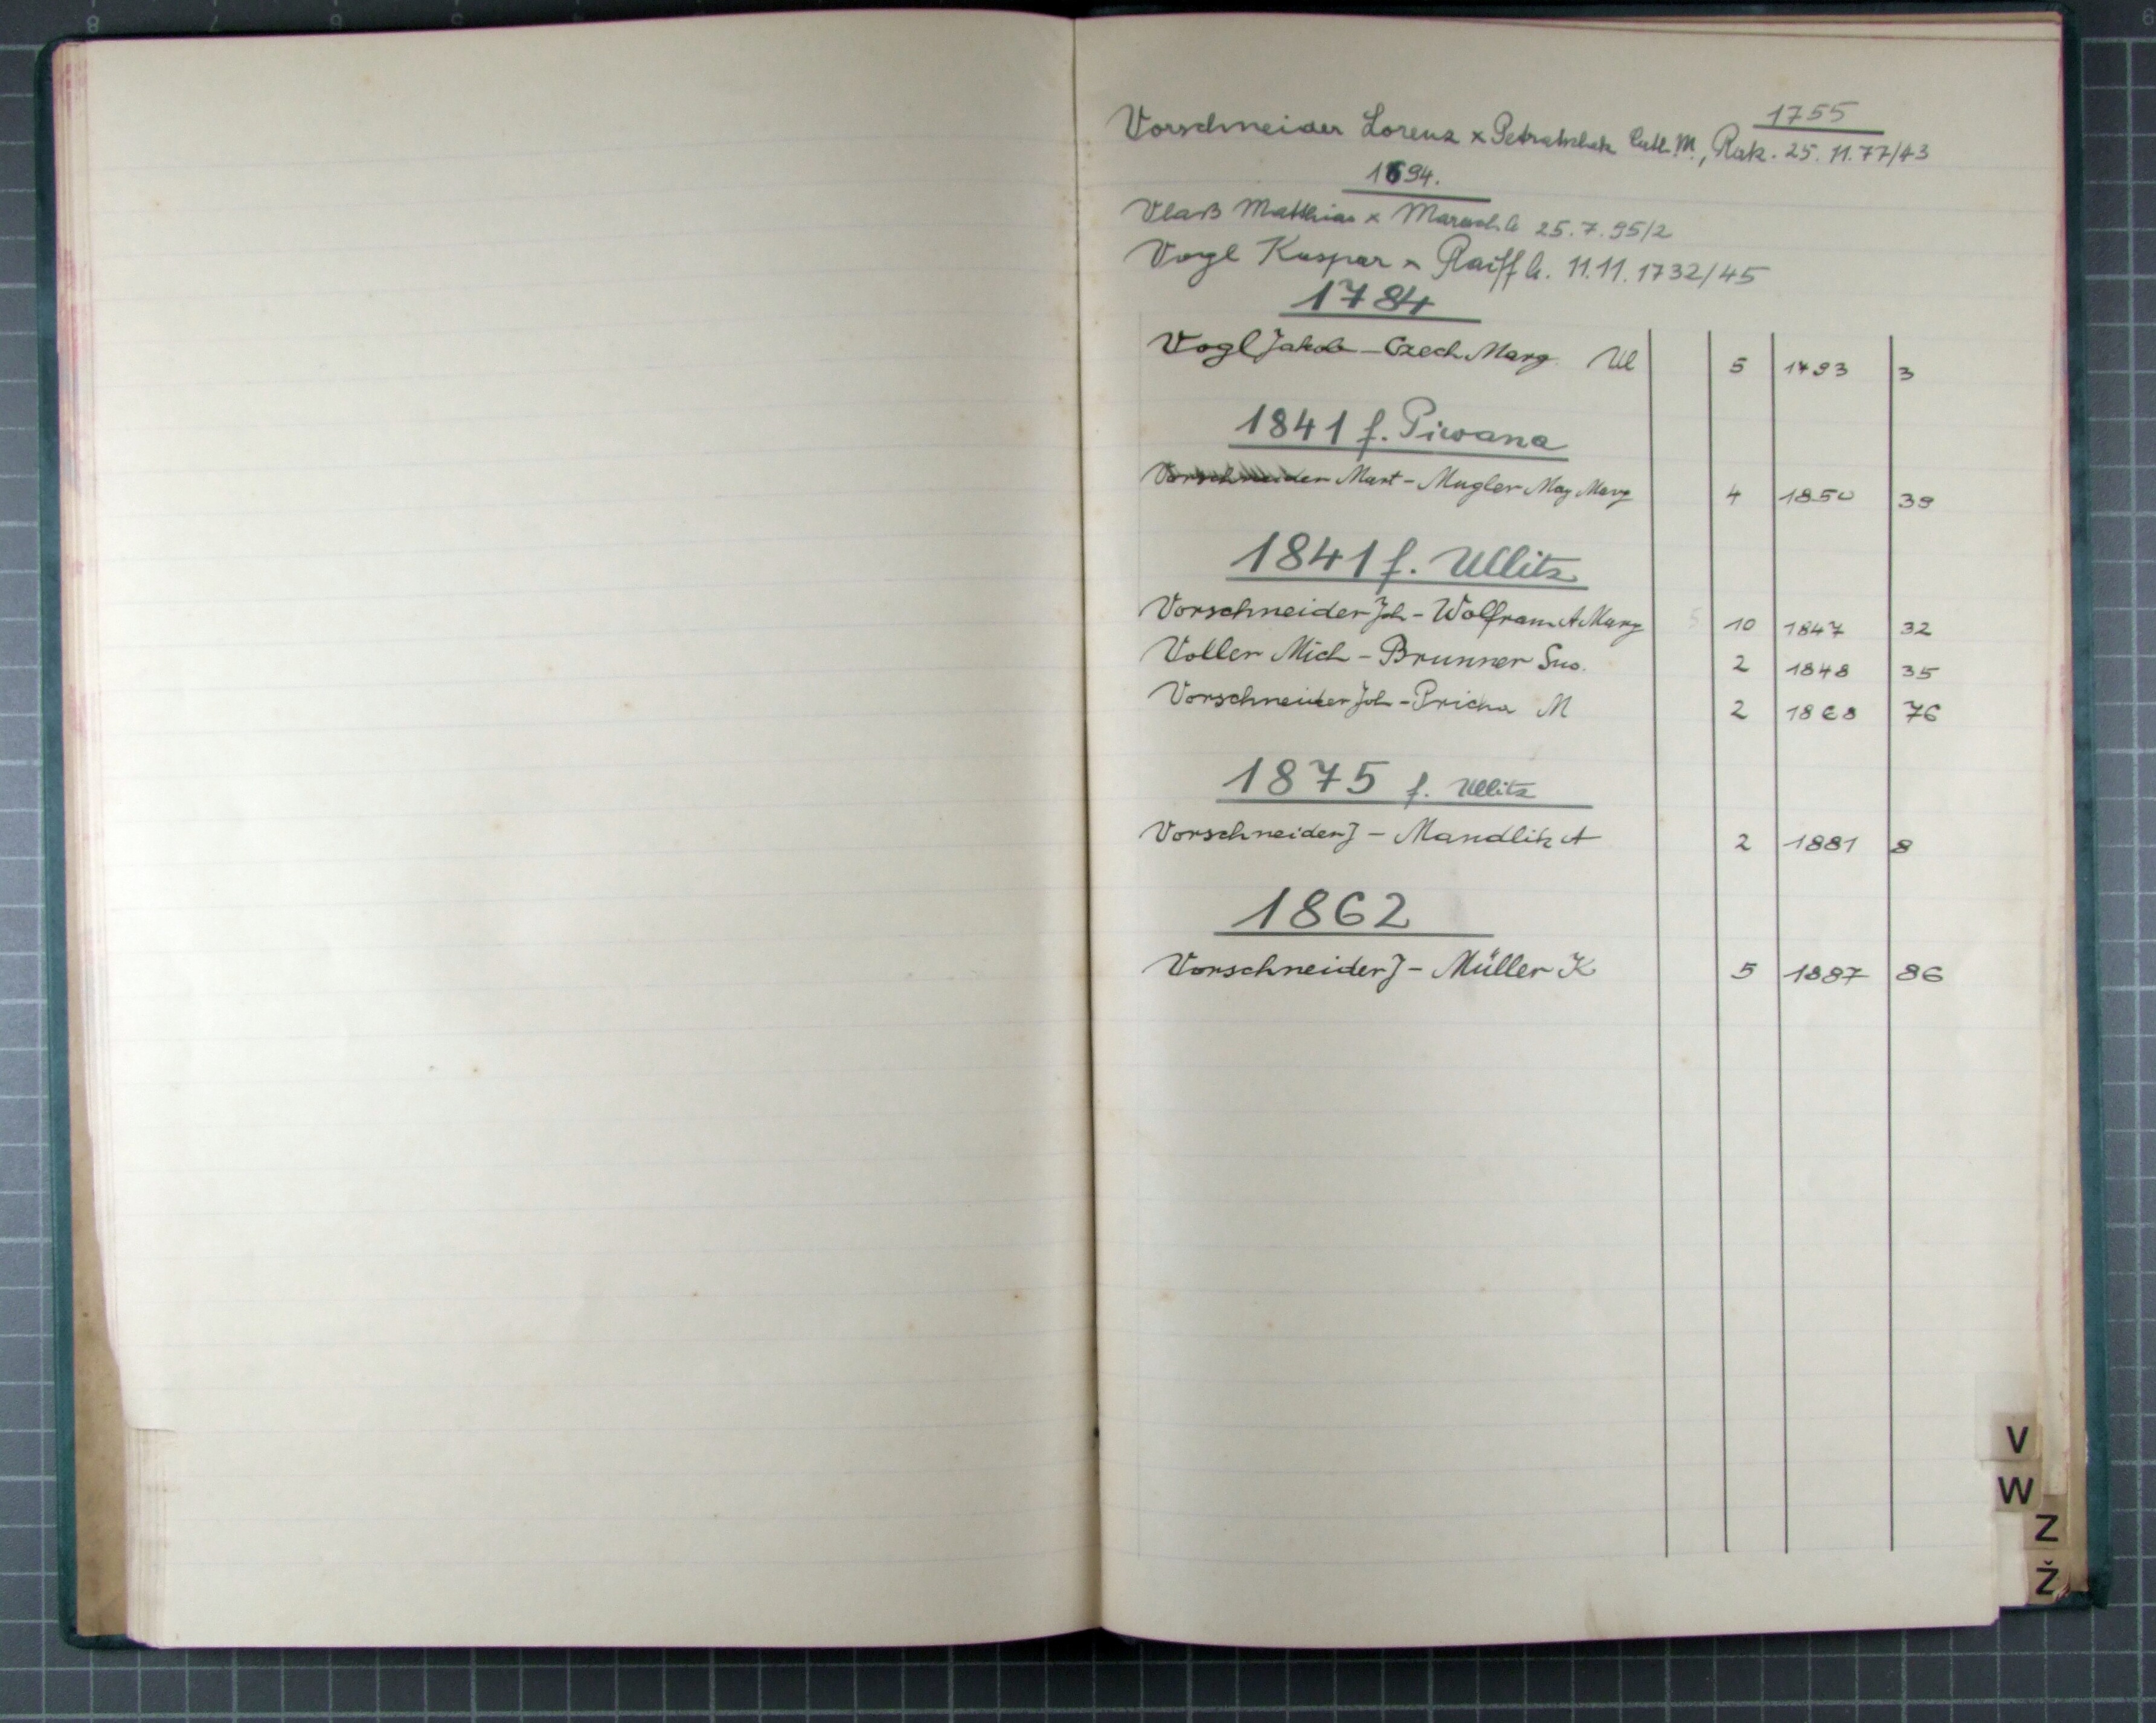 1755
Vorschneider Lorenz x Petratschek Cath. M., Rak. 25. 11. 77/43
1694.
Vlaß Matthias x 25. 7. 95/2
Vogl Kaspar x Raiff 11. 11. 1732/45
1784
Vogl Jakob - Czech Marg. Ul 5 1793 3
1841 f. Piwana
Vorschneider Mart - Mugler May Marg 4 1850 39
1841 f. Ullitz
Vorschneider Joh - Wolfram A Marg 10 1847 32
Voller Mich - Brunner Sus. 2 1848 35
Vorschneider Joh - Pricha M 2 1868 76
1875 f. Ullitz
Vorschneider J - Mandlik A 2 1881 8
1862
Vorschneider J - Müller K 5 1887 86
V
W
Z
Ž